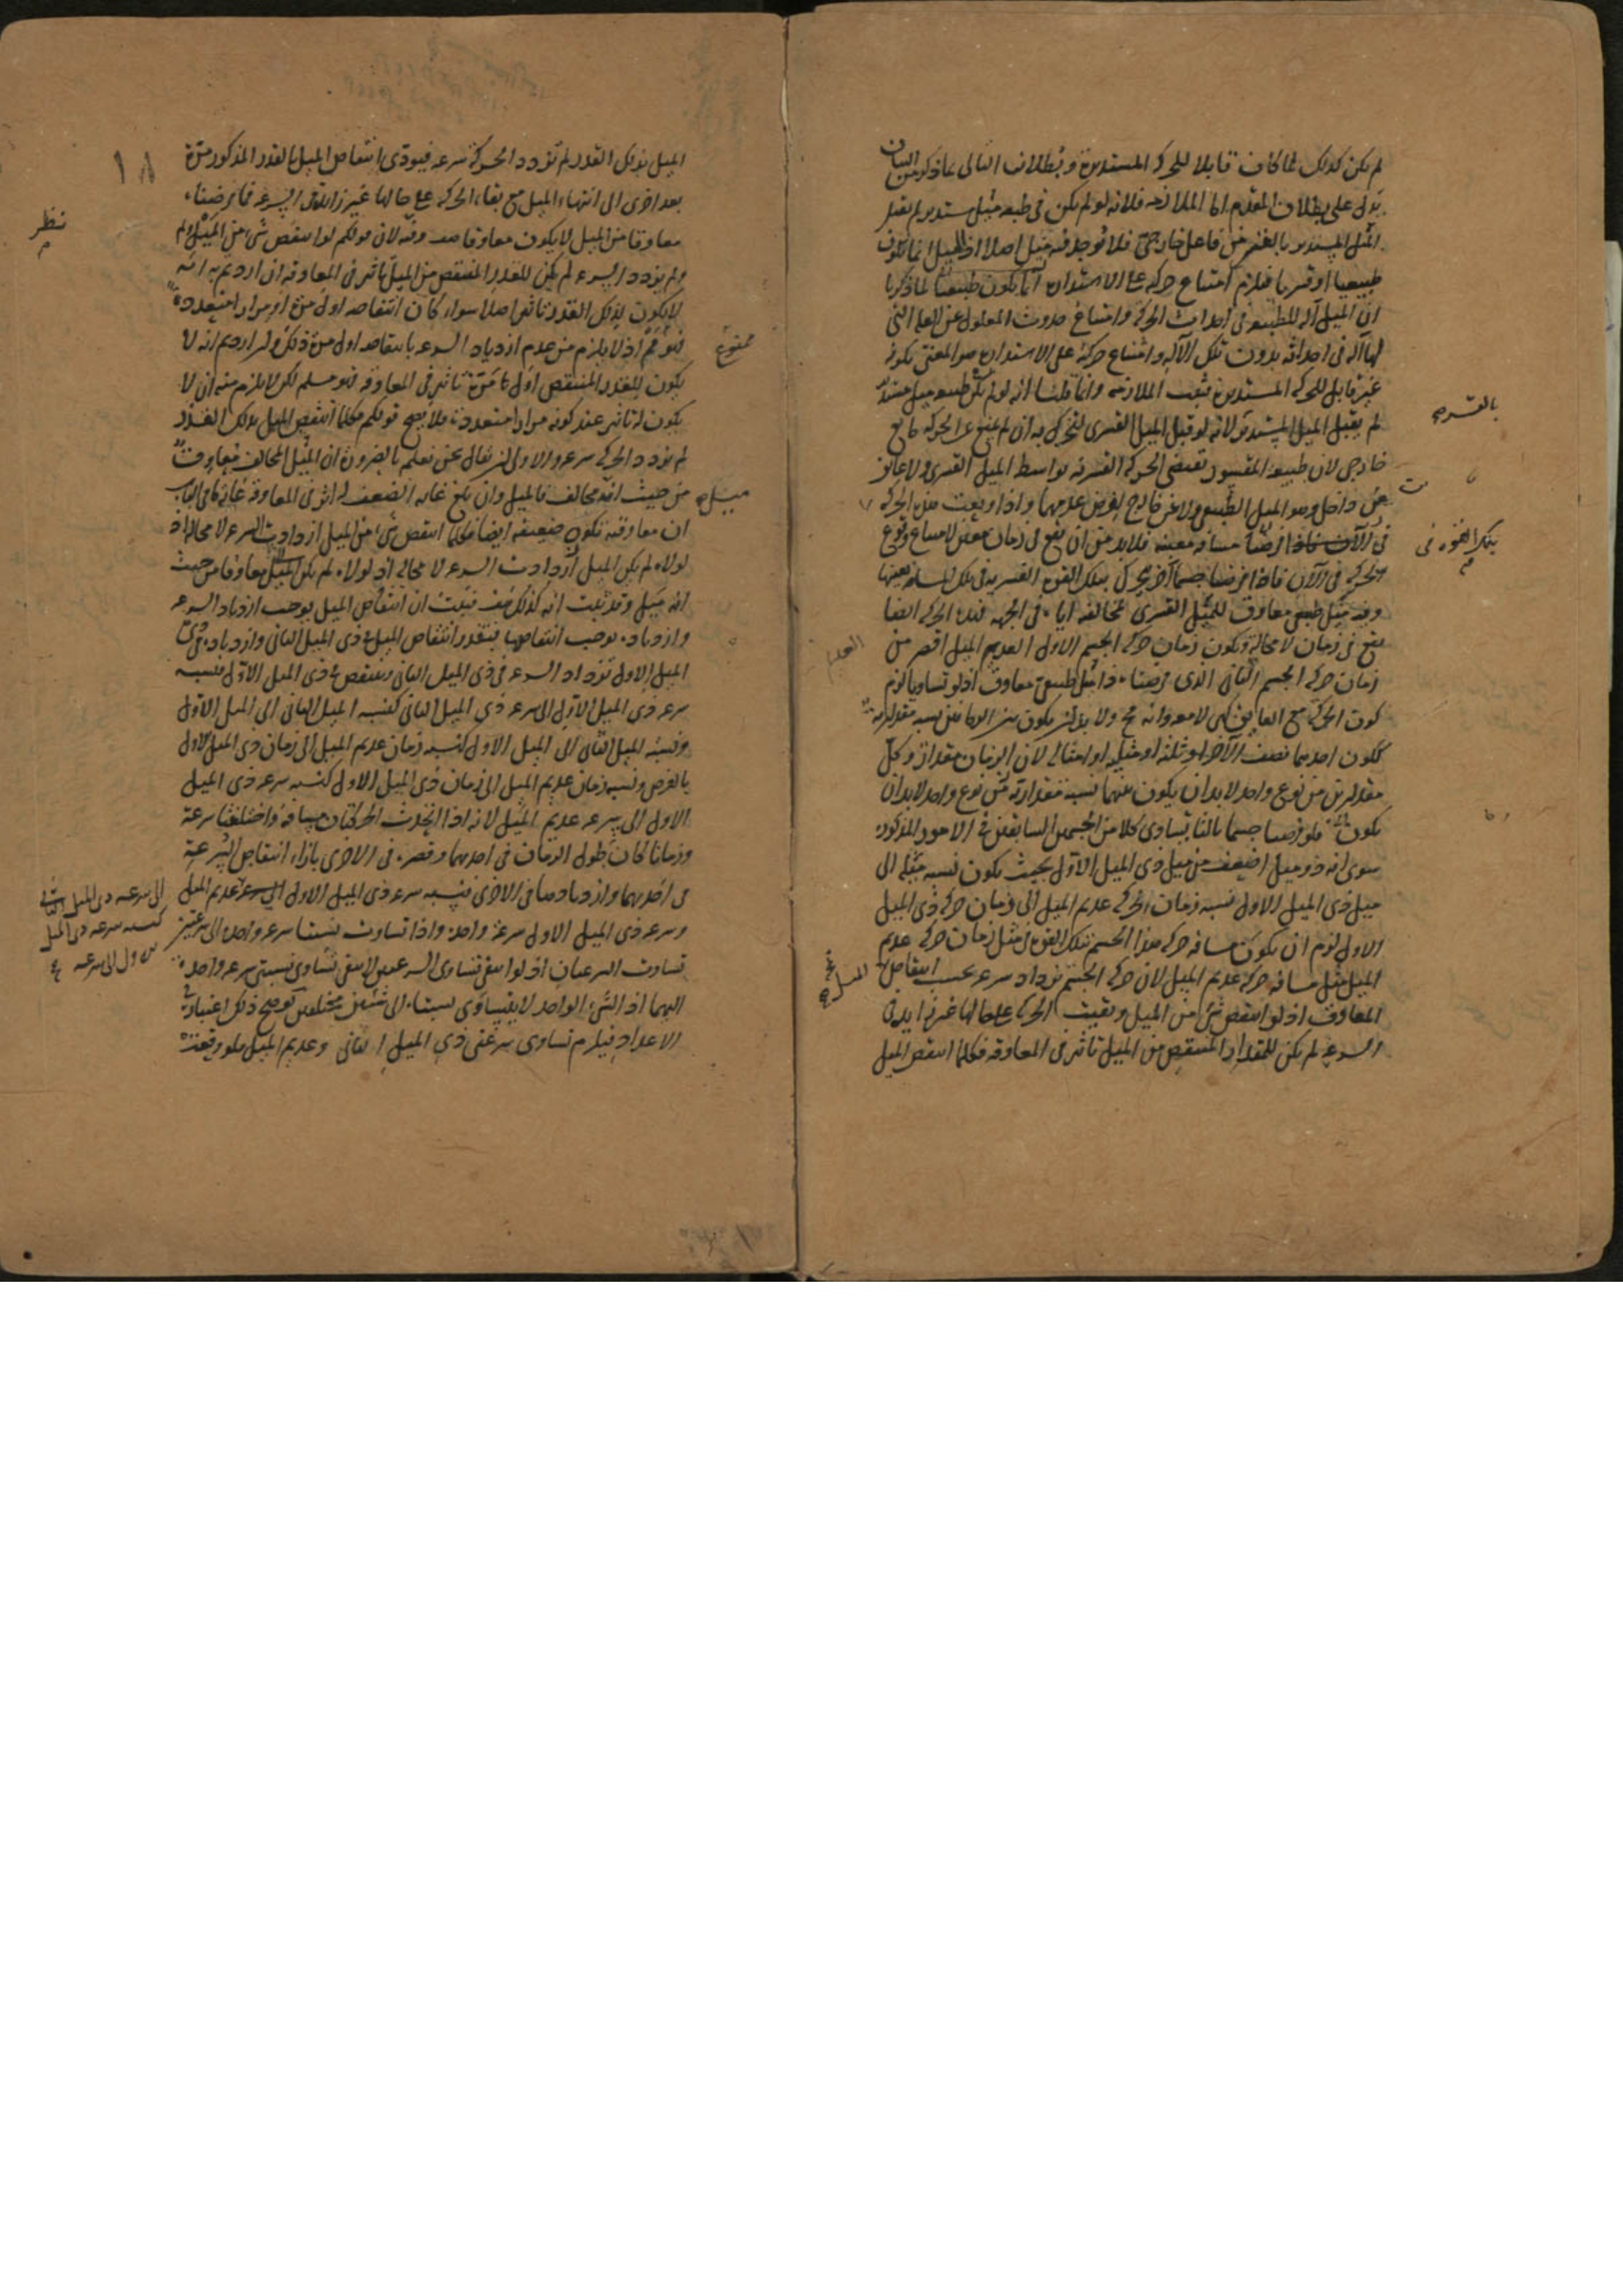 لم يكن كذلك لما كان قابلا للحركة المستديرة وبطلان التالى بما ذكر من البيان
يدل على بطلان المقدم اما الملازمة فلانه لو لم يكن فى طبعه ميل مستدير لم يقبل
الميل المستدير بالغير من فاعل خارجى فلا يوجد فيه ميل اصلا اذ الميل انما يكون
طبيعيا او قسريا فيلزم امتناع حركته على الاستدارة اما يكون طبيعيا لما ذكرنا
ان الميل آلة للطبيعة فى احداث الحركة وامتناع صدور المعلول عن العلة التى
لها آلة فى احداثه بدون تلك الآلة وامتناع حركته على الاستدارة هو المعنى بكونه
غير قابل للحركة المستديرة فثبت الملازمة وانما قلنا انه لو لم يكن فى طبعه ميل مستدير
لم يقبل الميل المستدير لانه لو قبل الميل القسرى لتحرك به ان لم يمنع عن الحركة مانع
خارجى لان طبيعة المقسور تقتضى الحركة القسرية بواسطة الميل القسرى ولا عائق
عن داخل وهو الميل الطبيعى ولا عن خارج لفرض عدمهما واذا وقعت هذه الحركة
فى الآن فاذا فرضنا مسافة معينة فلا بد من ان يقع فى زمان معين لامتناع وقوع
الحركة فى الآن فاذا فرضنا جسما آخر يحرك بتلك القوة القسرية فى تلك المسافة بعينها
وفيه ميل طبيعى معاوق للميل القسرى لمخالفته اياه فى الجهة فهذه الحركة ايضا
يقع فى زمان لا محالة ويكون زمان حركة الجسم الاول العديم الميل اقصر من
زمان حركة الجسم الثانى الذى فرضناه ذا ميل طبيعى معاوق اذ لو تساويا لزم
كون الحركة مع العائق كهى لا معه وانه مح ولا بد ان يكون بين الزمانين نسبة مقدارية
ككون احدهما نصف الآخر او ثلثه او مثليه او امثاله لان الزمان مقدار وكل
مقدارين من نوع واحد لا بد ان يكون بينهما نسبة مقدارية من نوع واحد لا بد ان
يكون فلو فرضنا جسما ثالثا يساوى كلا من الجسمين السابقين فى الامور المذكورة
سوى انه ذو ميل اضعف من ميل ذى الميل الاول بحيث يكون نسبة ميله الى
ميل ذى الميل الاول نسبة زمان حركة عديم الميل الى زمان حركة ذى الميل
الاول لزم ان يكون مسافة حركة هذا الجسم بتلك القوة فى مثل زمان حركة عديم
الميل مثل مسافة حركة عديم الميل لان حركة الجسم تزداد سرعة بحسب انتقاص
المعاوق اذ لو انتقص شئ من الميل وبقيت الحركة على حالها غير زايدة فى
السرعة لم يكن للمقدار المنتقص من الميل تاثير فى المعاوقة فكلما انتقص الميل
بالقسر صح
بتلك القوة فى
الميل صح
١٨
الميل بذلك القدر لم تزدد الحركة سرعة فيودى انتقاص الميل بالقدر المذكور مرة
بعد اخرى الى انتهاء الميل مع بقاء الحركة على حالها غير زائدة فى السرعة فما فرضناه
معاوقا من الميل لا يكون معاوقا هف وفيه لان قولكم لو انتقص شئ من الميل لم
ولم يزدد السرعة لم يكن للقدر المنتقص من الميل تاثير فى المعاوقة ان اردتم به انه
لا يكون لذلك القدر تاثير اصلا سواء كان انتقاصه اول مرة او مرارا متعددة
فهو مم اذ لا يلزم من عدم ازدياد السرعة بانتقاصه اول مرة ذلك ولو اردتم انه لا
يكون للقدر المنتقص اول مرة تاثير فى المعاوقة فهو مسلم لكن لا يلزم منه ان لا
يكون له تاثير عند كونه مرارا متعددة فلا يصح قولكم فكلما انتقص الميل بذلك القدر
لم تزدد الحركة سرعة والاولى ان يقال نحن نعلم بالضرورة ان الميل المخالف معاوق
من حيث انه مخالف فالميل وان بلغ غاية الضعف له اثر فى المعاوقة غاية ما فى الباب
ان معاوقته تكون ضعيفة ايضا فكلما انتقص شئ من الميل ازدادت السرعة لا محالة اذ
لولاه لم يكن الميل ازدادت السرعة لا محالة اذ لولاه لم يكن الميل معاوقا من حيث
انه ميل وقد ثبت انه كذلك هف فثبت ان انتقاص الميل يوجب ازدياد السرعة
وازدياده يوجب انتقاصها فبقدر انتقاص الميل فى ذى الميل الثانى وازدياده فى ذى
الميل الاول تزداد السرعة فى ذى الميل الثانى وينتقص فى ذى الميل الاول فنسبة
سرعة ذى الميل الاول الى سرعة ذى الميل الثانى كنسبة الميل الثانى الى الميل الاول
ونسبة الميل الثانى الى الميل الاول كنسبة زمان عديم الميل الى زمان ذى الميل الاول
بالفرض ونسبة زمان عديم الميل الى زمان ذى الميل الاول كنسبة سرعة ذى الميل
الاول الى سرعة عديم الميل لانه اذا اتحدت الحركتان مسافة واختلفتا سرعة
وزمانا كان طول الزمان فى احدهما وقصره فى الاخرى بازاء انتقاص السرعة
فى احدهما وازديادها فى الاخرى فنسبة سرعة ذى الميل الاول الى سرعة عديم الميل
وسرعة ذى الميل الاول سرعة واحدة واذا تساوت نسبتا سرعة واحدة الى سرعتين
تساوت السرعتان اذ لو انتفى تساوى السرعتين لانتفى تساوى نسبتى سرعة واحدة
اليهما اذ الشئ الواحد لا يتساوى نسبتاه الى شيئين مختلفين يوضح ذلك اعتباره فى
الاعداد فيلزم تساوى سرعتى ذى الميل الثانى وعديم الميل فلو وقعت
نظر
ممنوع
ميل صح
الى سرعة ذى الميل الثانى
كنسبة سرعة ذى الميل
الاول الى سرعة